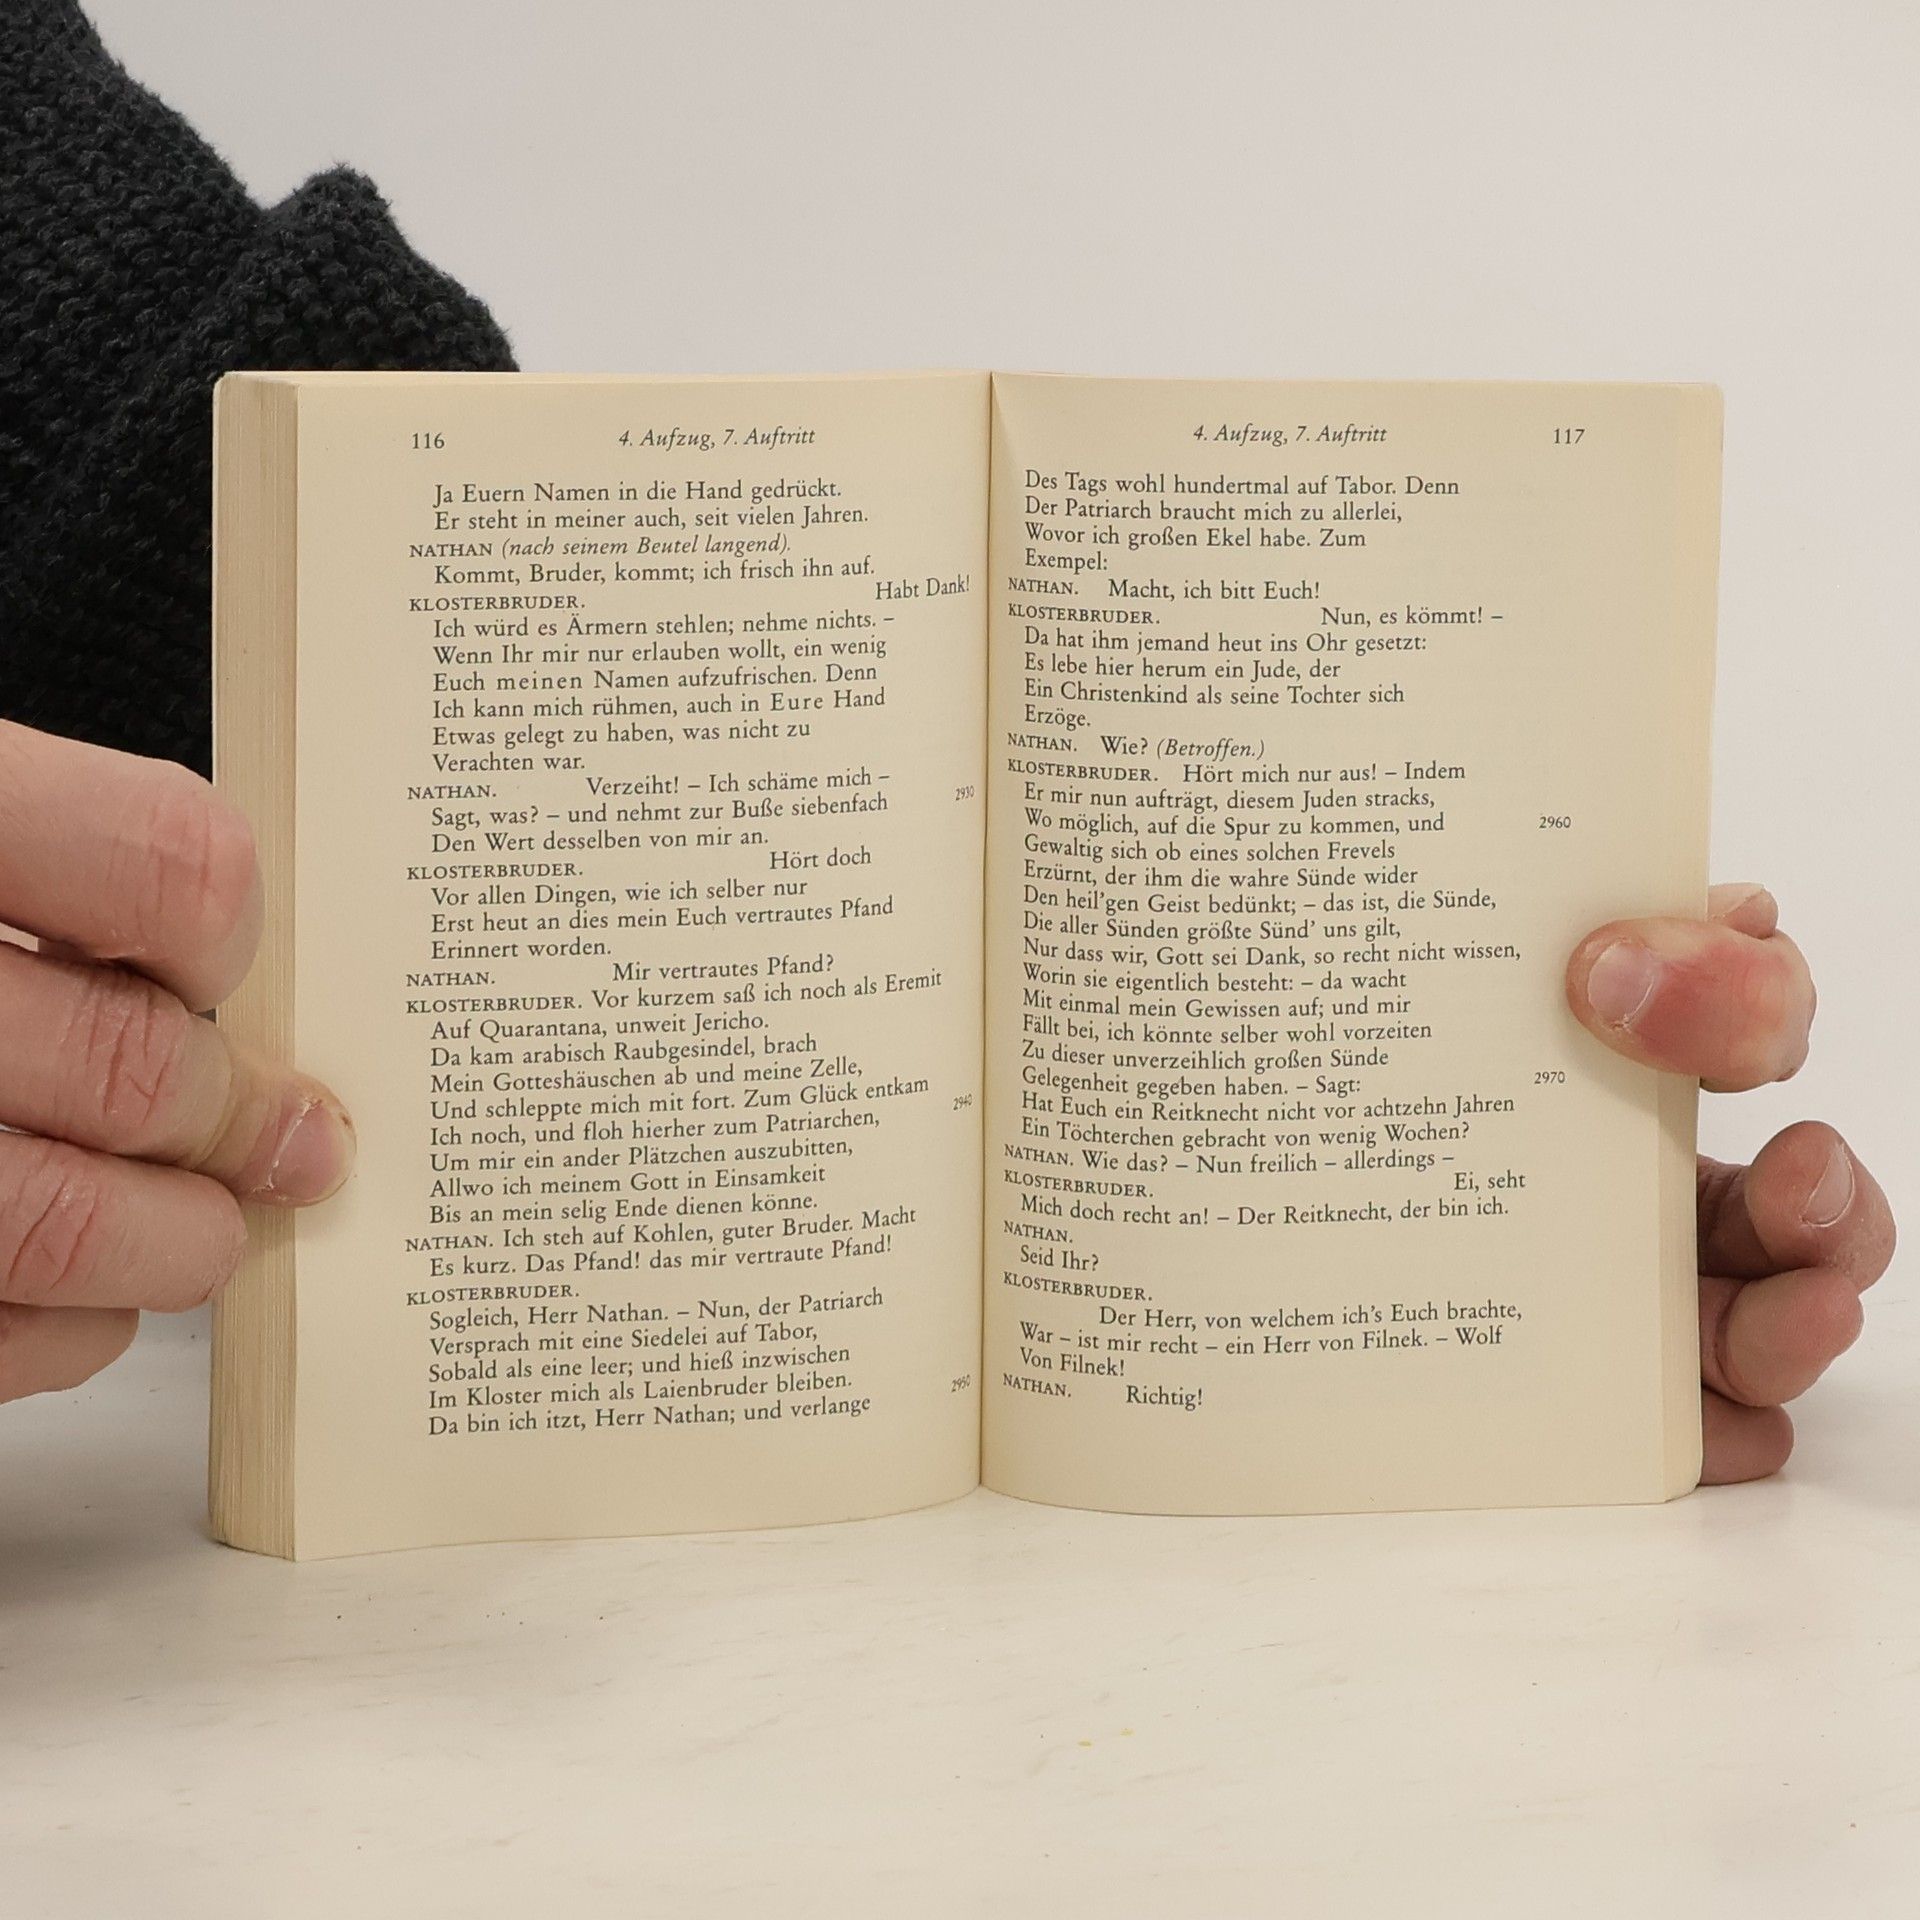 116
4. Aufzug, 7. Auftritt
Ja Euern Namen in die Hand gedrückt.
Er steht in meiner auch, seit vielen Jahren.
NATHAN (nach seinem Beutel langend).
Kommt, Bruder, kommt; ich frisch ihn auf.
KLOSTERBRUDER. Habt Dank!
Ich würd es Ärmern stehlen; nehme nichts. –
Wenn Ihr mir nur erlauben wollt, ein wenig
Euch meinen Namen aufzufrischen. Denn
Ich kann mich rühmen, auch in Eure Hand
Etwas gelegt zu haben, was nicht zu
Verachten war.
NATHAN. Verzeiht! – Ich schäme mich –
Sagt, was? – und nehmt zur Buße siebenfach 2930
Den Wert desselben von mir an.
KLOSTERBRUDER. Hört doch
Vor allen Dingen, wie ich selber nur
Erst heut an dies mein Euch vertrautes Pfand
Erinnert worden.
NATHAN. Mir vertrautes Pfand?
KLOSTERBRUDER. Vor kurzem saß ich noch als Eremit
Auf Quarantana, unweit Jericho.
Da kam arabisch Raubgesindel, brach
Mein Gotteshäuschen ab und meine Zelle,
Und schleppte mich mit fort. Zum Glück entkam
Ich noch, und floh hierher zum Patriarchen, 2940
Um mir ein ander Plätzchen auszubitten,
Allwo ich meinem Gott in Einsamkeit
Bis an mein selig Ende dienen könne.
NATHAN. Ich steh auf Kohlen, guter Bruder. Macht
Es kurz. Das Pfand! das mir vertraute Pfand!
KLOSTERBRUDER.
Sogleich, Herr Nathan. – Nun, der Patriarch
Versprach mit eine Siedelei auf Tabor,
Sobald als eine leer; und hieß inzwischen
Im Kloster mich als Laienbruder bleiben.
Da bin ich itzt, Herr Nathan; und verlange 2950
4. Aufzug, 7. Auftritt
117
Des Tags wohl hundertmal auf Tabor. Denn
Der Patriarch braucht mich zu allerlei,
Wovor ich großen Ekel habe. Zum
Exempel:
NATHAN. Macht, ich bitt Euch!
KLOSTERBRUDER. Nun, es kömmt! –
Da hat ihm jemand heut ins Ohr gesetzt:
Es lebe hier herum ein Jude, der
Ein Christenkind als seine Tochter sich
Erzöge.
NATHAN. Wie? (Betroffen.)
KLOSTERBRUDER. Hört mich nur aus! – Indem
Er mir nun aufträgt, diesem Juden stracks,
Wo möglich, auf die Spur zu kommen, und 2960
Gewaltig sich ob eines solchen Frevels
Erzürnt, der ihm die wahre Sünde wider
Den heil'gen Geist bedünkt; – das ist, die Sünde,
Die aller Sünden größte Sünd' uns gilt,
Nur dass wir, Gott sei Dank, so recht nicht wissen,
Worin sie eigentlich besteht: – da wacht
Mit einmal mein Gewissen auf; und mir
Fällt bei, ich könnte selber wohl vorzeiten
Zu dieser unverzeihlich großen Sünde
Gelegenheit gegeben haben. – Sagt: 2970
Hat Euch ein Reitknecht nicht vor achtzehn Jahren
Ein Töchterchen gebracht von wenig Wochen?
NATHAN. Wie das? – Nun freilich – allerdings –
KLOSTERBRUDER. Ei, seht
Mich doch recht an! – Der Reitknecht, der bin ich.
NATHAN.
Seid Ihr?
KLOSTERBRUDER.
Der Herr, von welchem ich's Euch brachte,
War – ist mir recht – ein Herr von Filnek. – Wolf
Von Filnek!
NATHAN. Richtig!